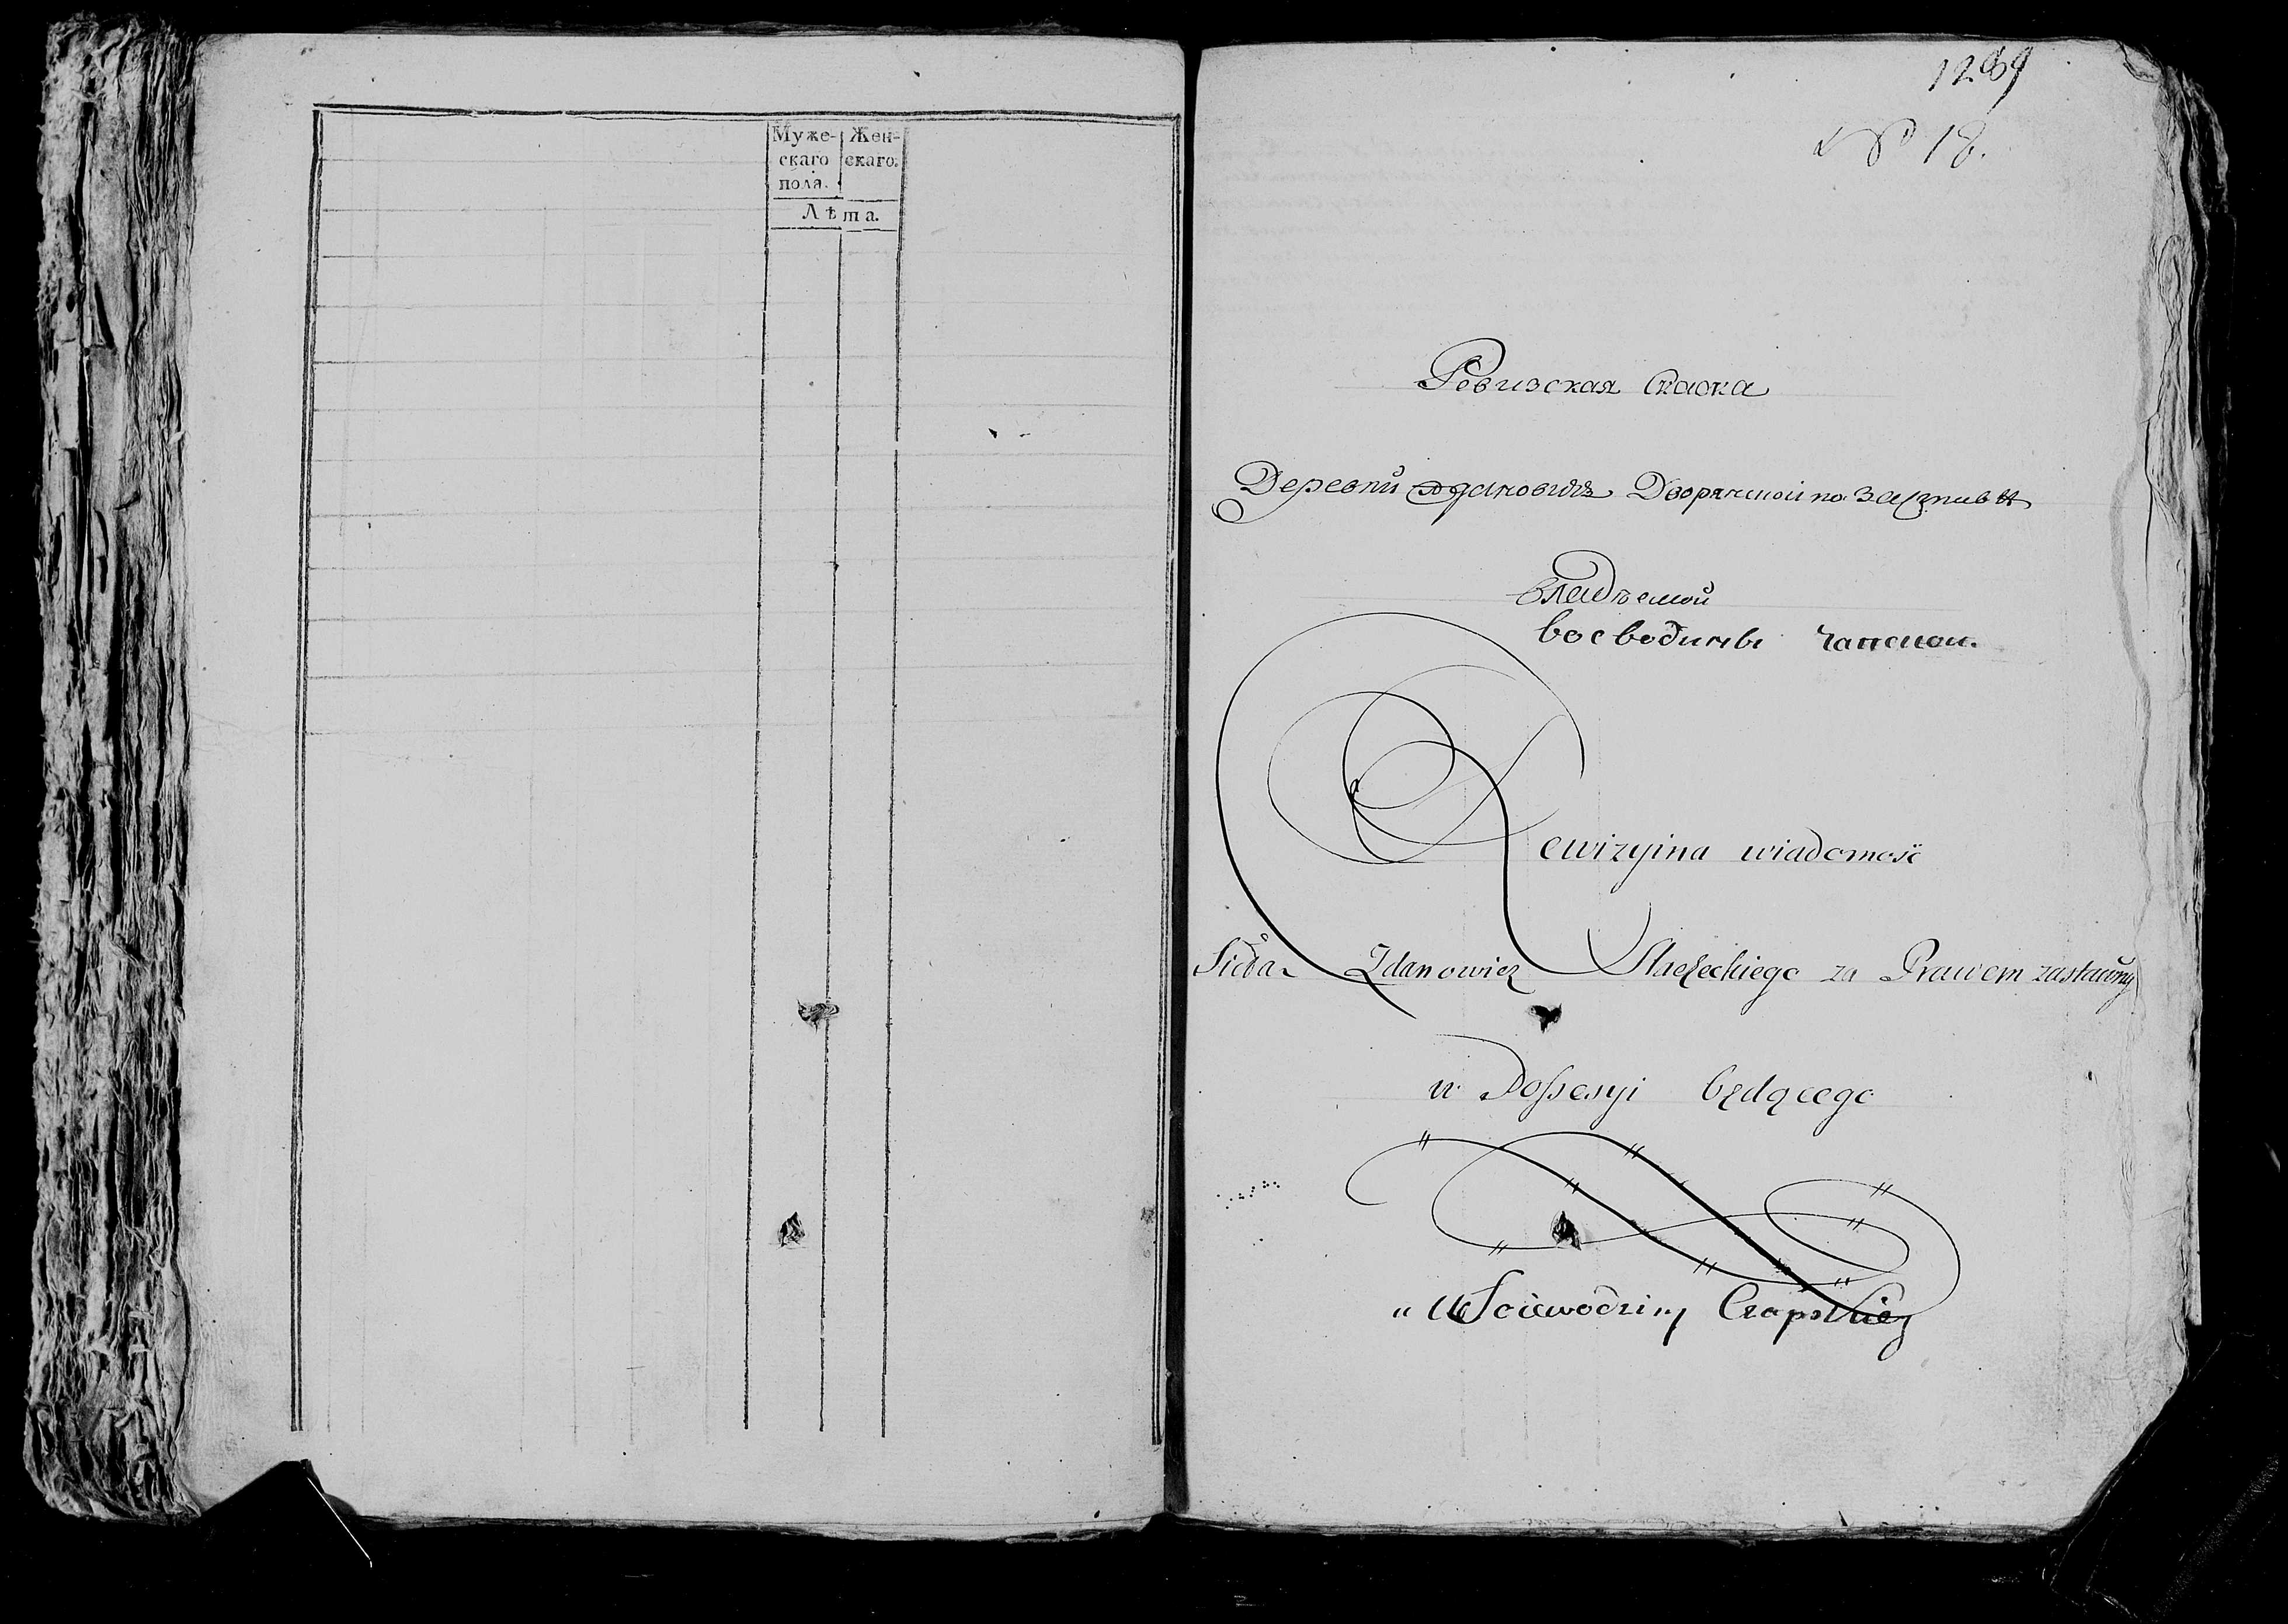 Муже-
скаго
пола.
Жен-
скаго.
Лѣта.
1289
№ 18.
Ревизская Сказка
Деревни Здановичъ Дворянской по заставѣ
владѣемой
воеводины Чапской.
Rewizyina wiadomość
Sioła Zdanowicz Szlacheckiego za Prawem zastawnym
w Possesyi będącego
Woiewodziny Czapskiey